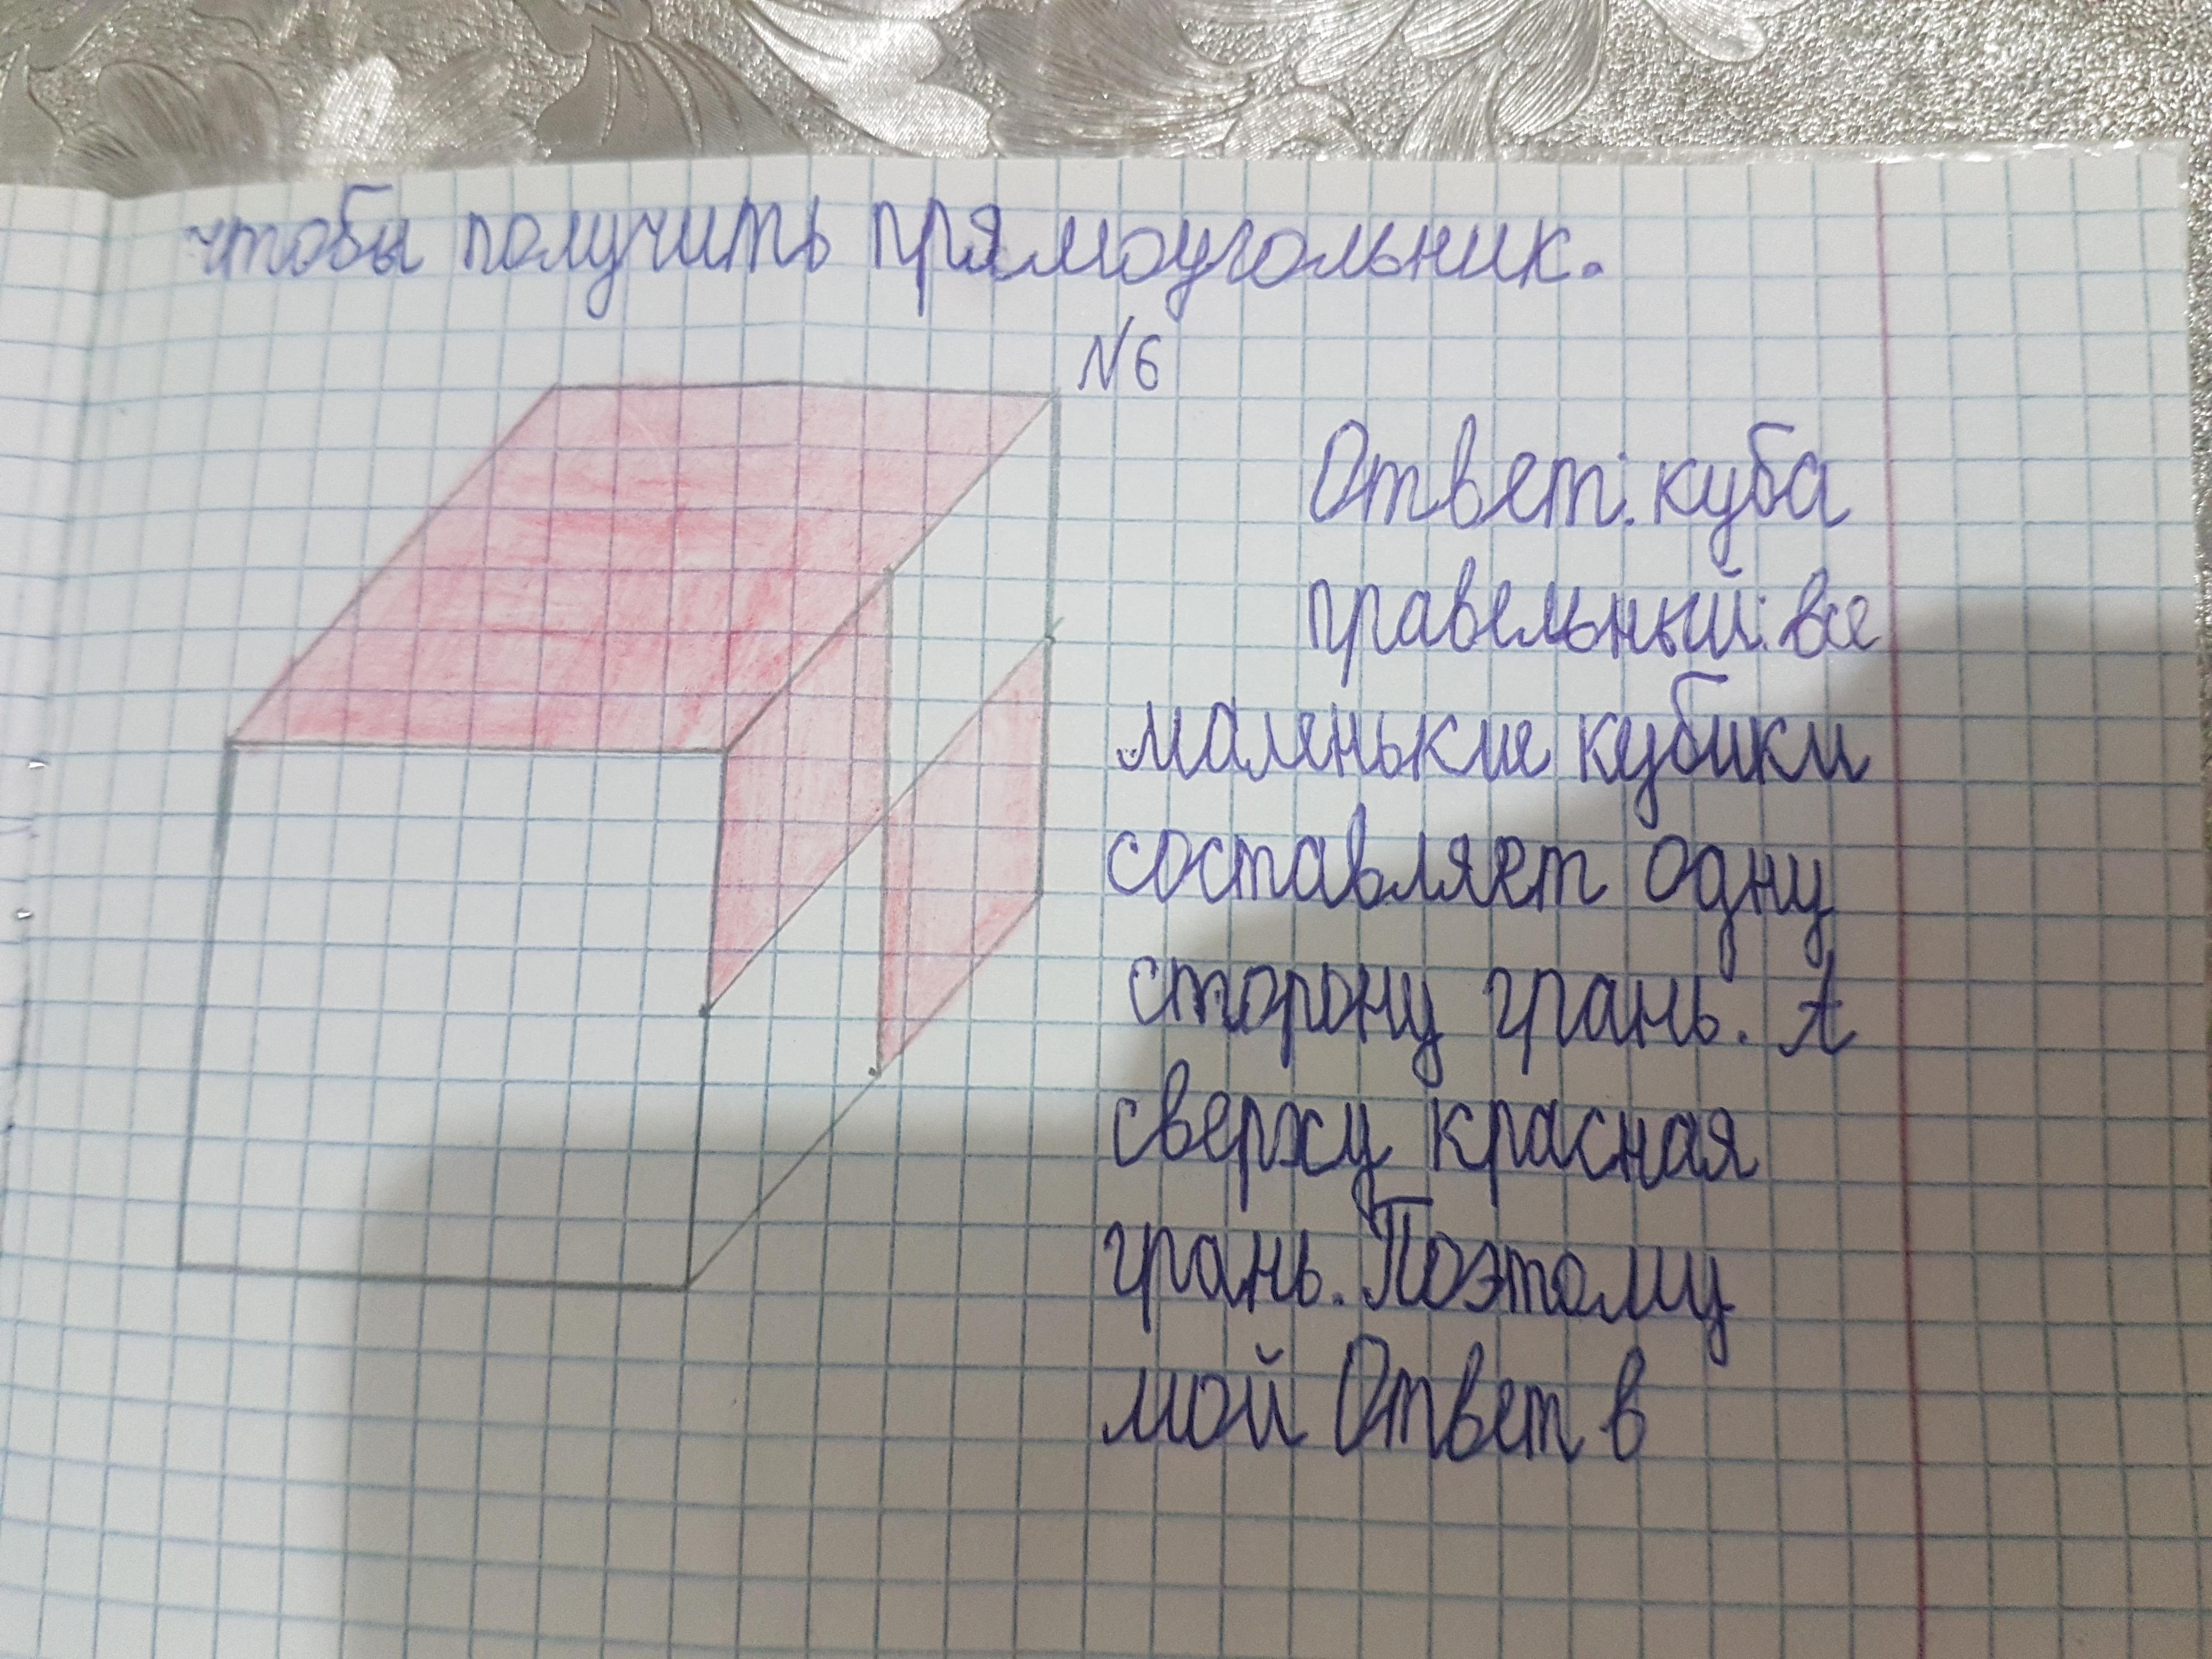 чтобы получить прямоугольник.
№6
Ответ: куба
правельный: все
маленькие кубики
составляет одну
сторону грань. А
сверху красная
грань. Поэтому
мой Ответ в